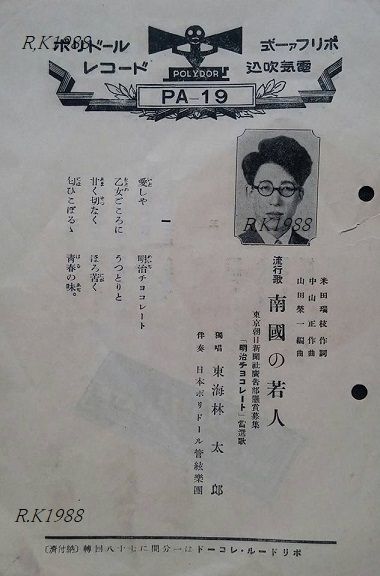 ポリドール
レコード
ポリファー式
電氣吹込
POLYDOR
PA-19
米田瑞枝作詞
中山正作曲
山田榮一編曲
流行歌 南國の若人
東京朝日新聞社廣告部懸賞募集
「明治チョコレート」當選歌
獨唱 東海林太郎
伴奏 日本ポリドール管絃樂團
一
愛しや 明治チョコレート
乙女ごころに うつとりと
甘く切なく ほろ苦く
匂ひこぼるゝ 青春の味。
ポリドール・レコードは一分間に七十八回轉(納付済)
R.K1988
R.K1988
R.K1988